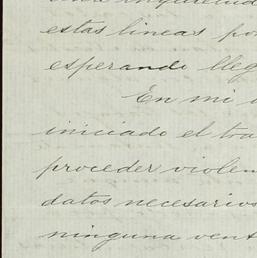 estas lineas po
esperando lleg
En mi
iniciado el tra
proceder violen
datos necesarios
ninguna vent